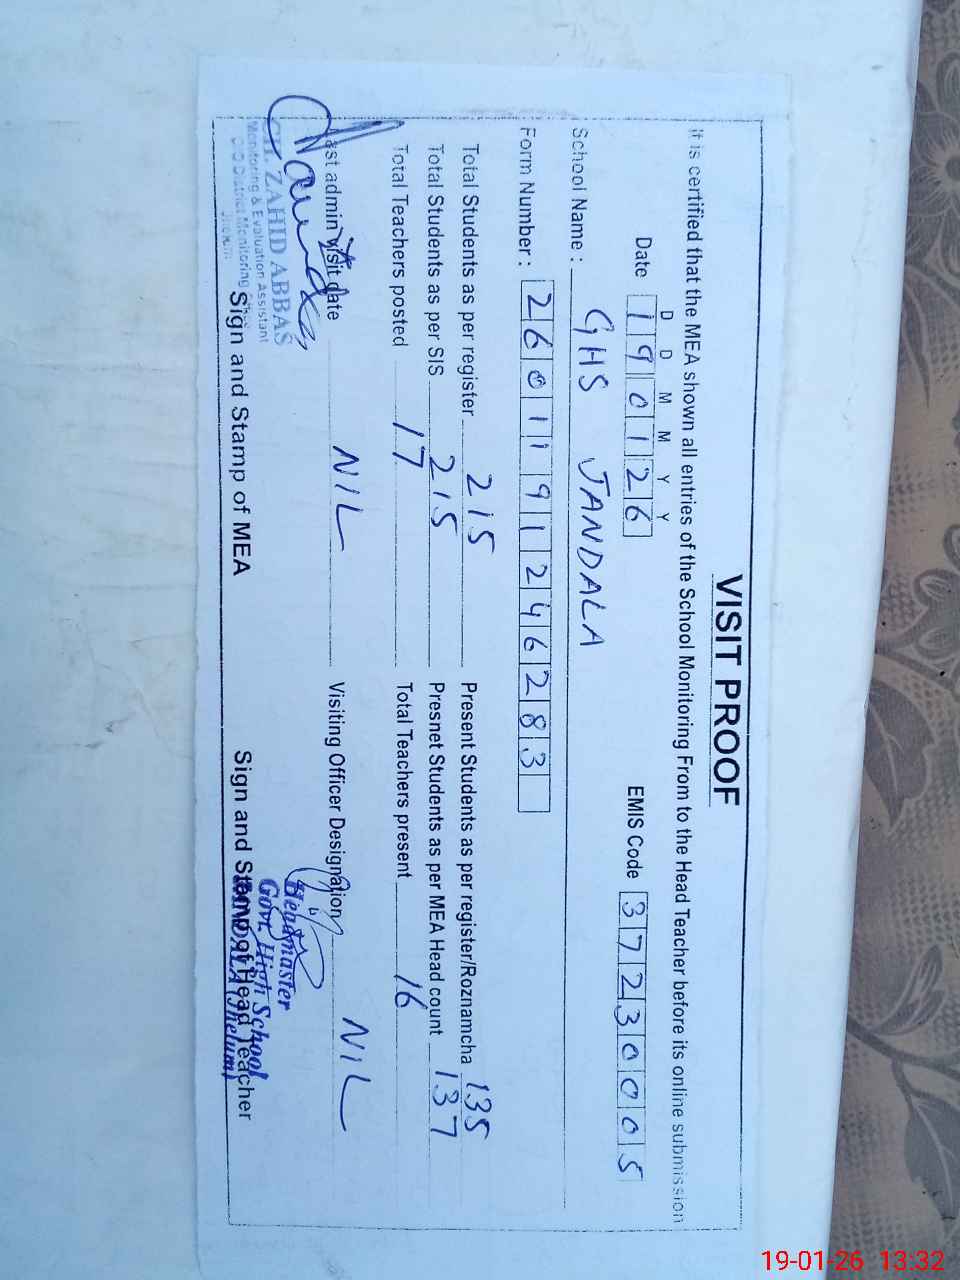 VISIT PROOF
It is certified that the MEA shown all entries of the School Monitoring From to the Head Teacher before its online submission
D D M M Y Y
Date 190126 EMIS Code 37230005
School Name : GHS JANDALA
Form Number : 2601191246283
Total Students as per register 215 Present Students as per register/Roznamcha 135
Total Students as per SIS 215 Presnet Students as per MEA Head count 137
Total Teachers posted 17 Total Teachers present 16
Last admin visit date NIL Visiting Officer Designation NIL
CH. ZAHID ABBAS
Monitoring & Evaluation Assistant
O/O District Monitoring Officer
Jhelum.
Headmaster
Govt. High School
JANDALA (Jhelum)
Sign and Stamp of MEA Sign and Stamp of Head Teacher
19-01-26 13:32